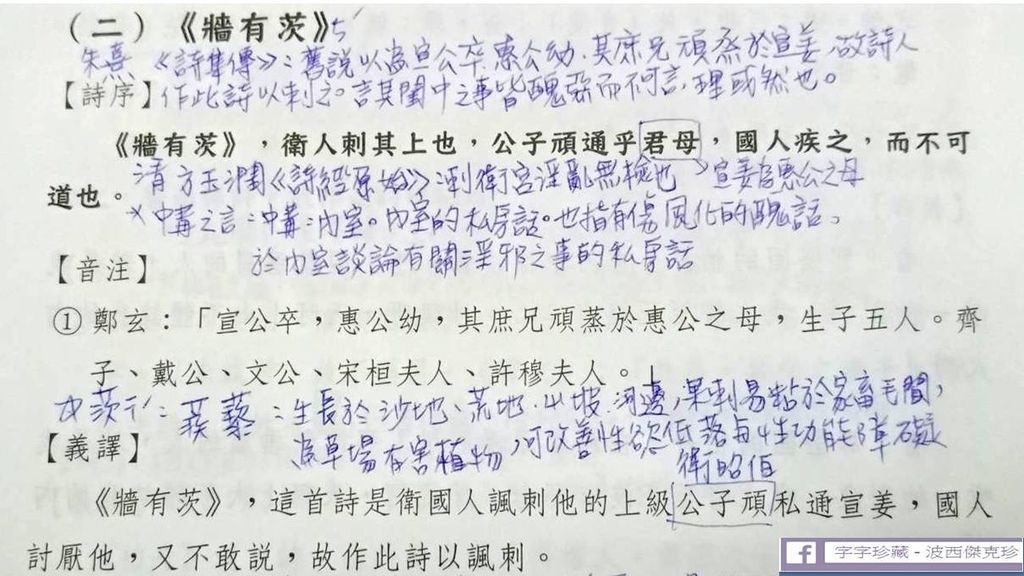 (二)《牆有茨》ㄘˊ
朱熹《詩集傳》:舊說以為宣公卒惠公幼,其庶兄頑烝於宣姜,故詩人
【詩序】作此詩以刺之。言其閨中之事皆醜惡而不可言,理或然也。
《牆有茨》,衛人刺其上也,公子頑通乎君母,國人疾之,而不可
道也。 清方玉潤《詩經原始》:刺衛宮淫亂無檢也 宣姜為惠公之母
中冓之言:中冓:內室。內室的私房話。也指有傷風化的醜話。
【音注】 於內室談論有關淫邪之事的私房話
①鄭玄:「宣公卒,惠公幼,其庶兄頑蒸於惠公之母,生子五人。齊
子、戴公、文公、宋桓夫人、許穆夫人。」
茨:蒺藜:生長於沙地、荒地、山坡、河邊,果刺易粘於家畜毛間,
【義譯】 為草場有害植物,可改善性慾低落與性功能障礙
衛昭伯
《牆有茨》,這首詩是衛國人諷刺他的上級公子頑私通宣姜,國人
討厭他,又不敢說,故作此詩以諷刺。
字字珍藏-波西傑克珍